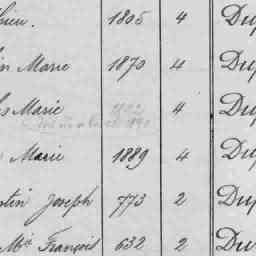 hieu. 1805 4 Du
in Marie 1870 4 Du
s Marie 4 Du
Marie 1889 4 Du
tin Joseph 773 2 Du
Mie François 632 2 Du